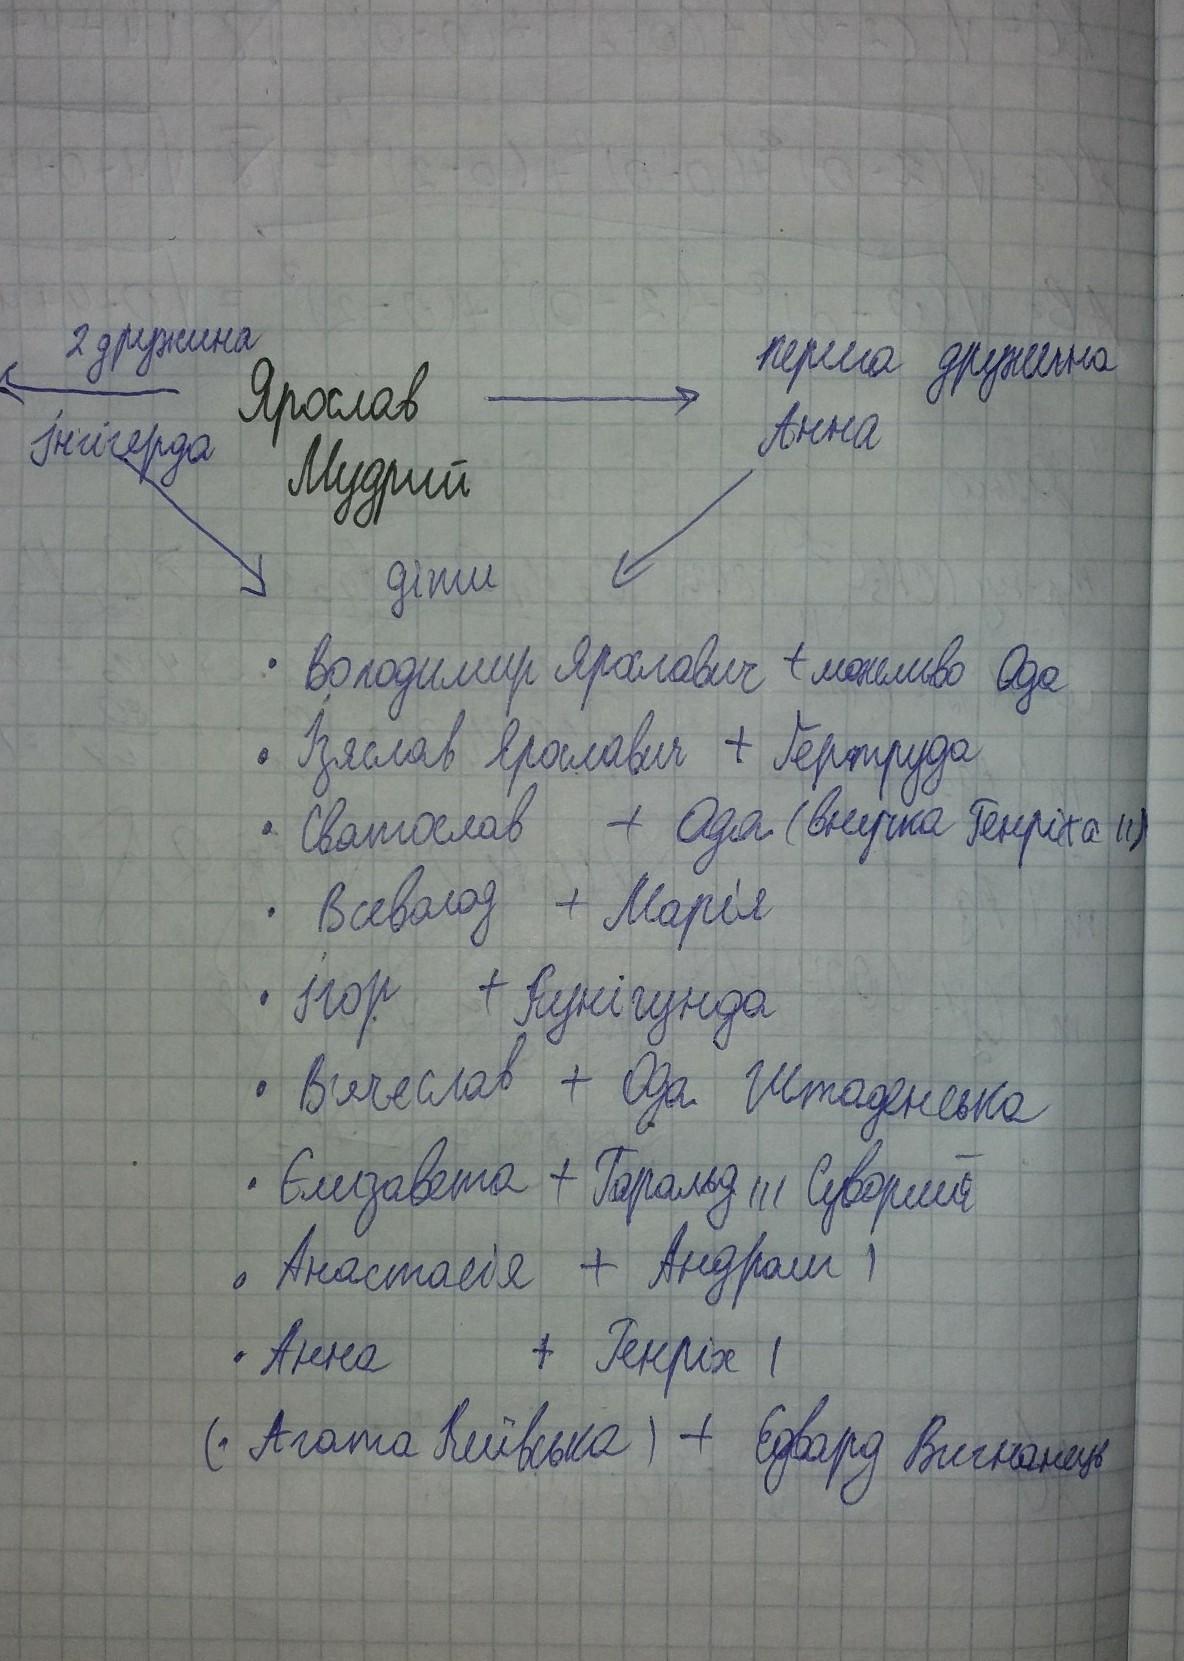 2 дружина
Інгігерда
Ярослав
Мудрий
перша дружина
Анна
діти
• Володимир Ярославич + можливо Ода
• Ізяслав Ярославич + Гертруда
• Святослав + Ода (внучка Генріха II)
• Всеволод + Марія
• Ігор + Кунігунда
• Вячеслав + Ода Штаденська
• Єлизавета + Гаральд III Суворий
• Анастасія + Андраш I
• Анна + Генріх I
(• Агата Київська) + Едвард Вигнанець